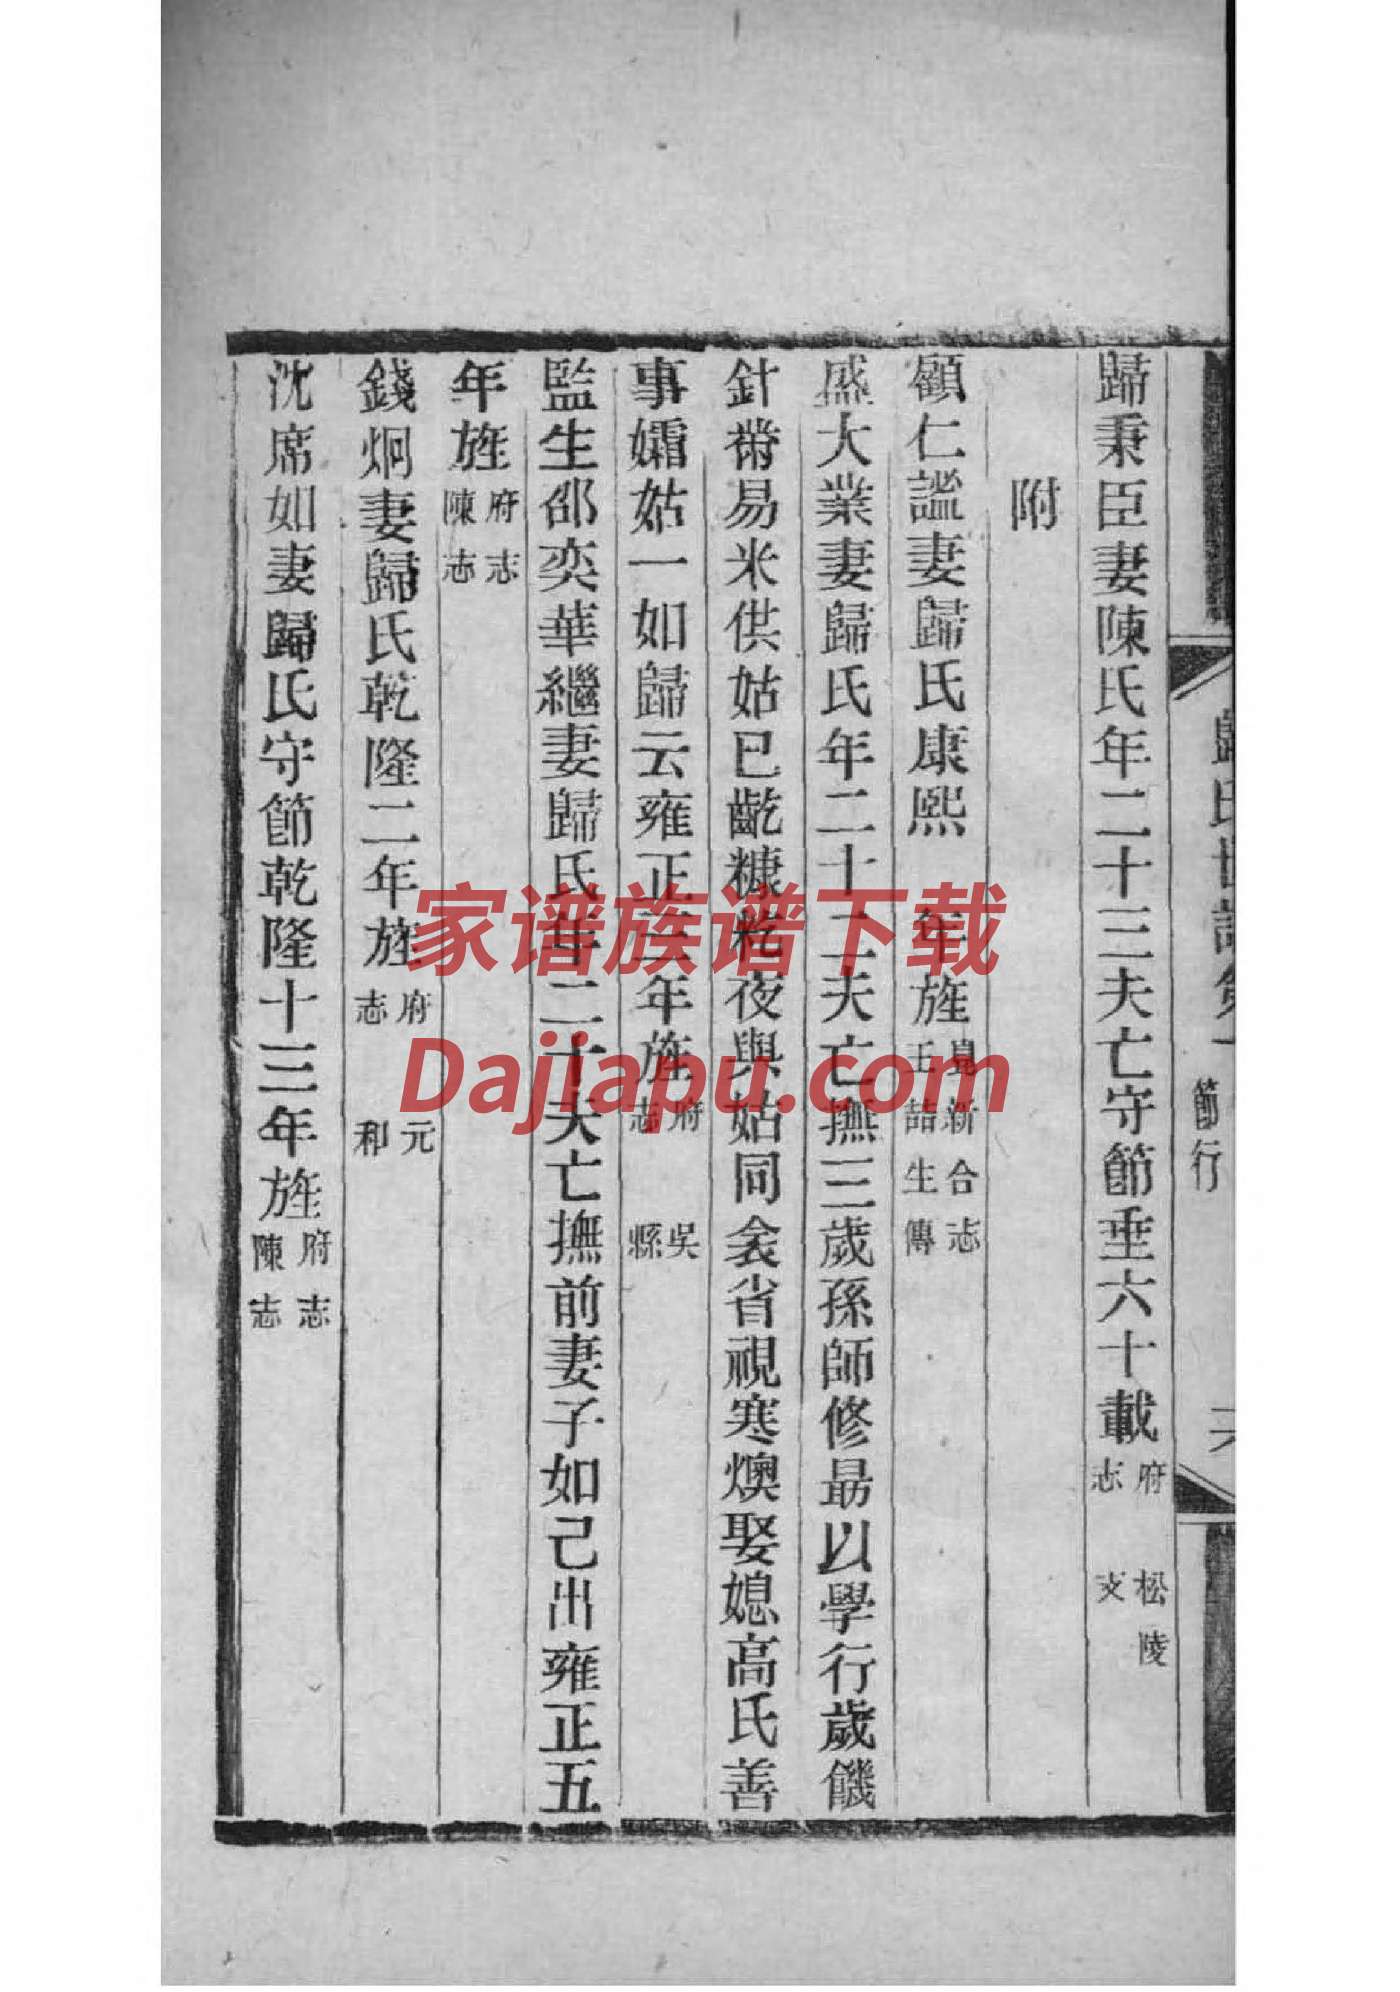 歸氏世譜
節行
六
歸秉臣妻陳氏年二十三夫亡守節垂六十載府志 松陵支
附
顧仁謐妻歸氏康熙 年旌崑新合志王喆生傳
盛大業妻歸氏年二十二夫亡撫三歲孫師修最以學行歲饑
針黹易米供姑已齕糠籺夜與姑同衾省視寒燠娶媳高氏善
事孀姑一如歸云雍正三年旌府志 吳縣
監生邵奕華繼妻歸氏年二十夫亡撫前妻子如己出雍正五
年旌府志陳志
錢炯妻歸氏乾隆二年旌府志 元和
沈席如妻歸氏守節乾隆十三年旌府志陳志
家谱族谱下载
Dajiapu.com